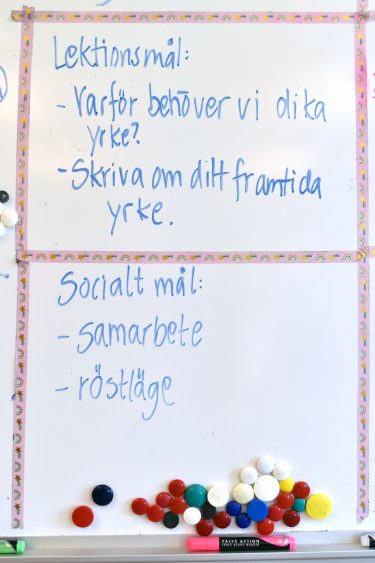 Lektionsmål:
- Varför behöver vi olika
yrke?
- Skriva om ditt framtida
yrke.
Socialt mål:
- samarbete
- röstläge
VALVE ACTION